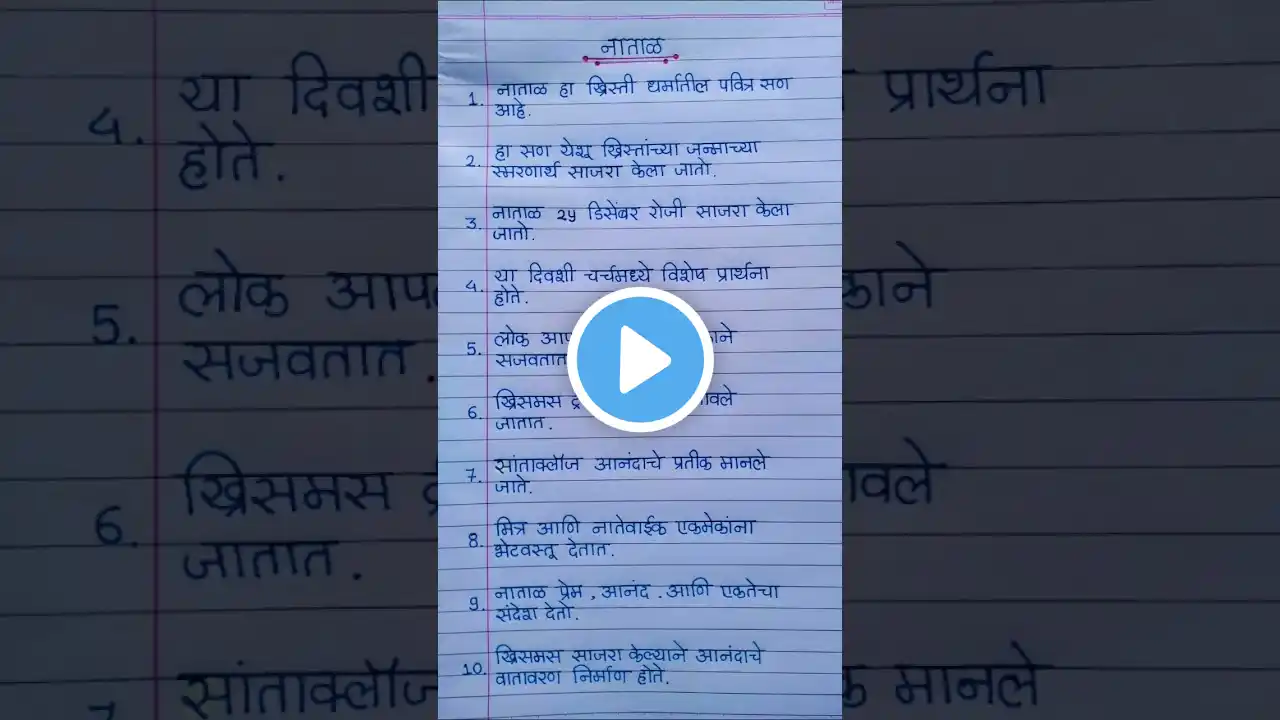 नाताळ
1. नाताळ हा ख्रिस्ती धर्मातील पवित्र सण
आहे.
2. हा सण येशू ख्रिस्तांच्या जन्माच्या
स्मरणार्थ साजरा केला जातो.
3. नाताळ 25 डिसेंबर रोजी साजरा केला
जातो.
4. या दिवशी चर्चमध्ये विशेष प्रार्थना
होते.
5. लोक
सजवतात
6. ख्रिसमस
जातात.
7. सांताक्लॉज आनंदाचे प्रतीक मानले
जाते.
8. मित्र आणि नातेवाईक एकमेकांना
भेटवस्तू देतात.
9. नाताळ प्रेम , आनंद . आणि एकतेचा
संदेश देतो.
10. ख्रिसमस साजरा केल्याने आनंदाचे
वातावरण निर्माण होते.
4. या दिवशी प्रार्थना
होते.
5. लोक
सजवतात.
6. ख्रिसमस
जातात.
सांताक्लॉज मानले